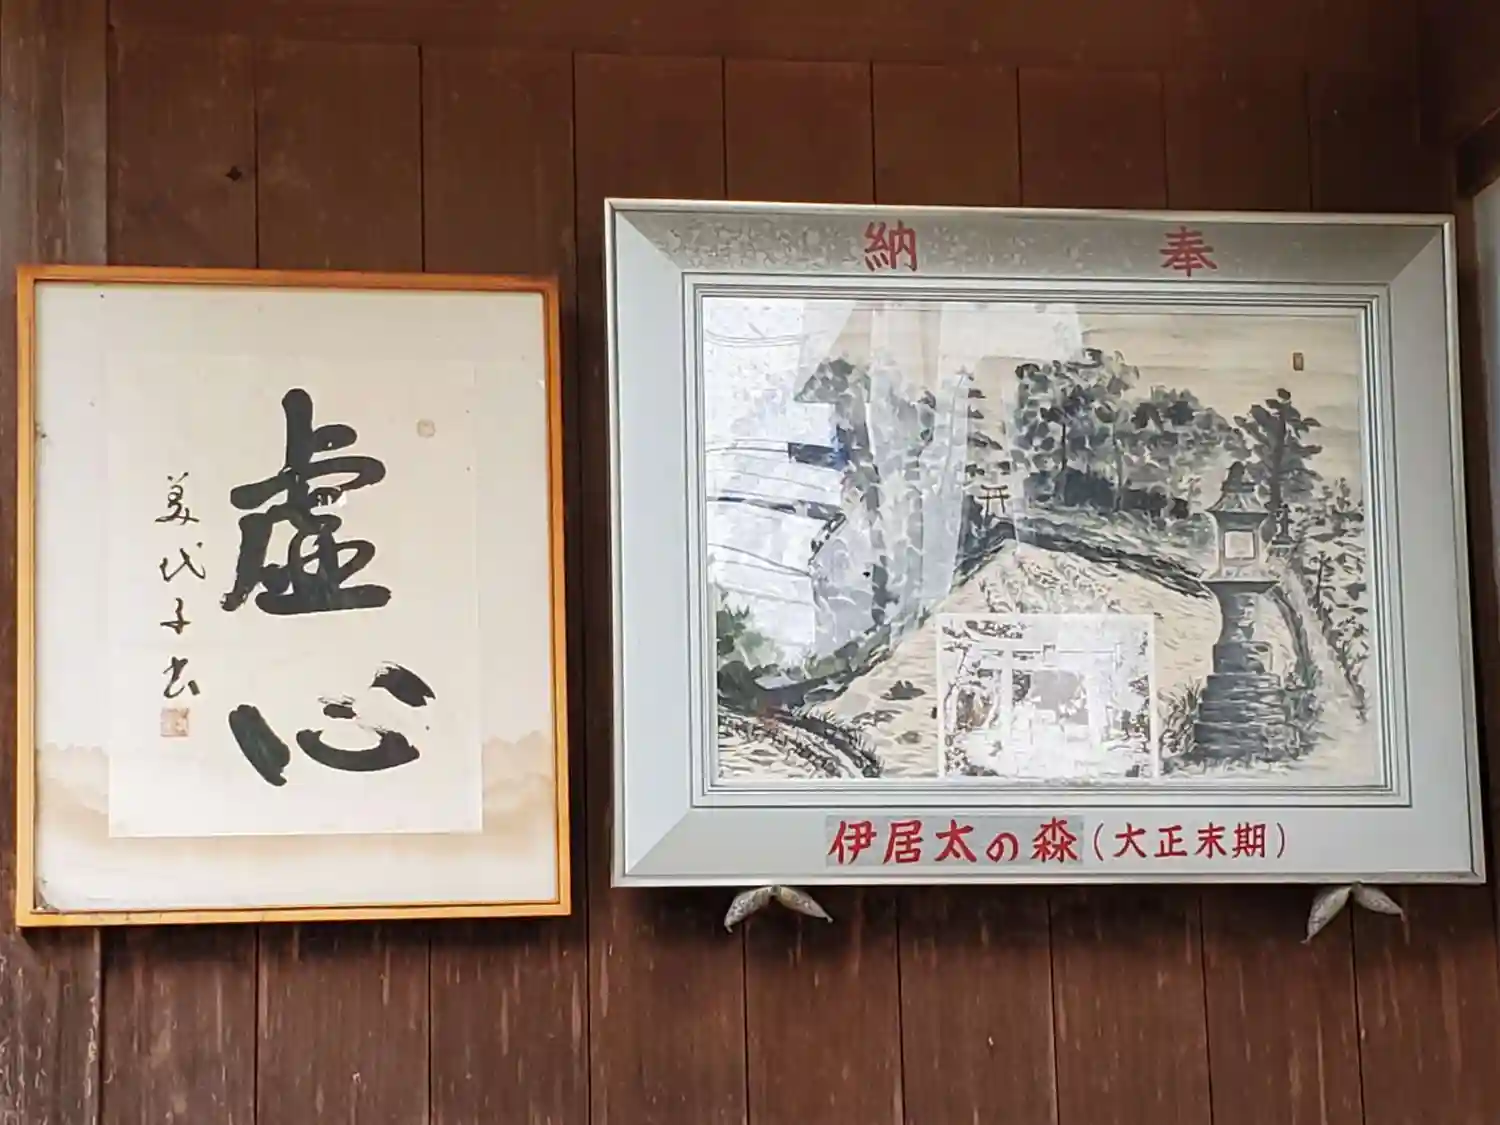 虚心
美代子書
納 奉
伊居太の森(大正末期)